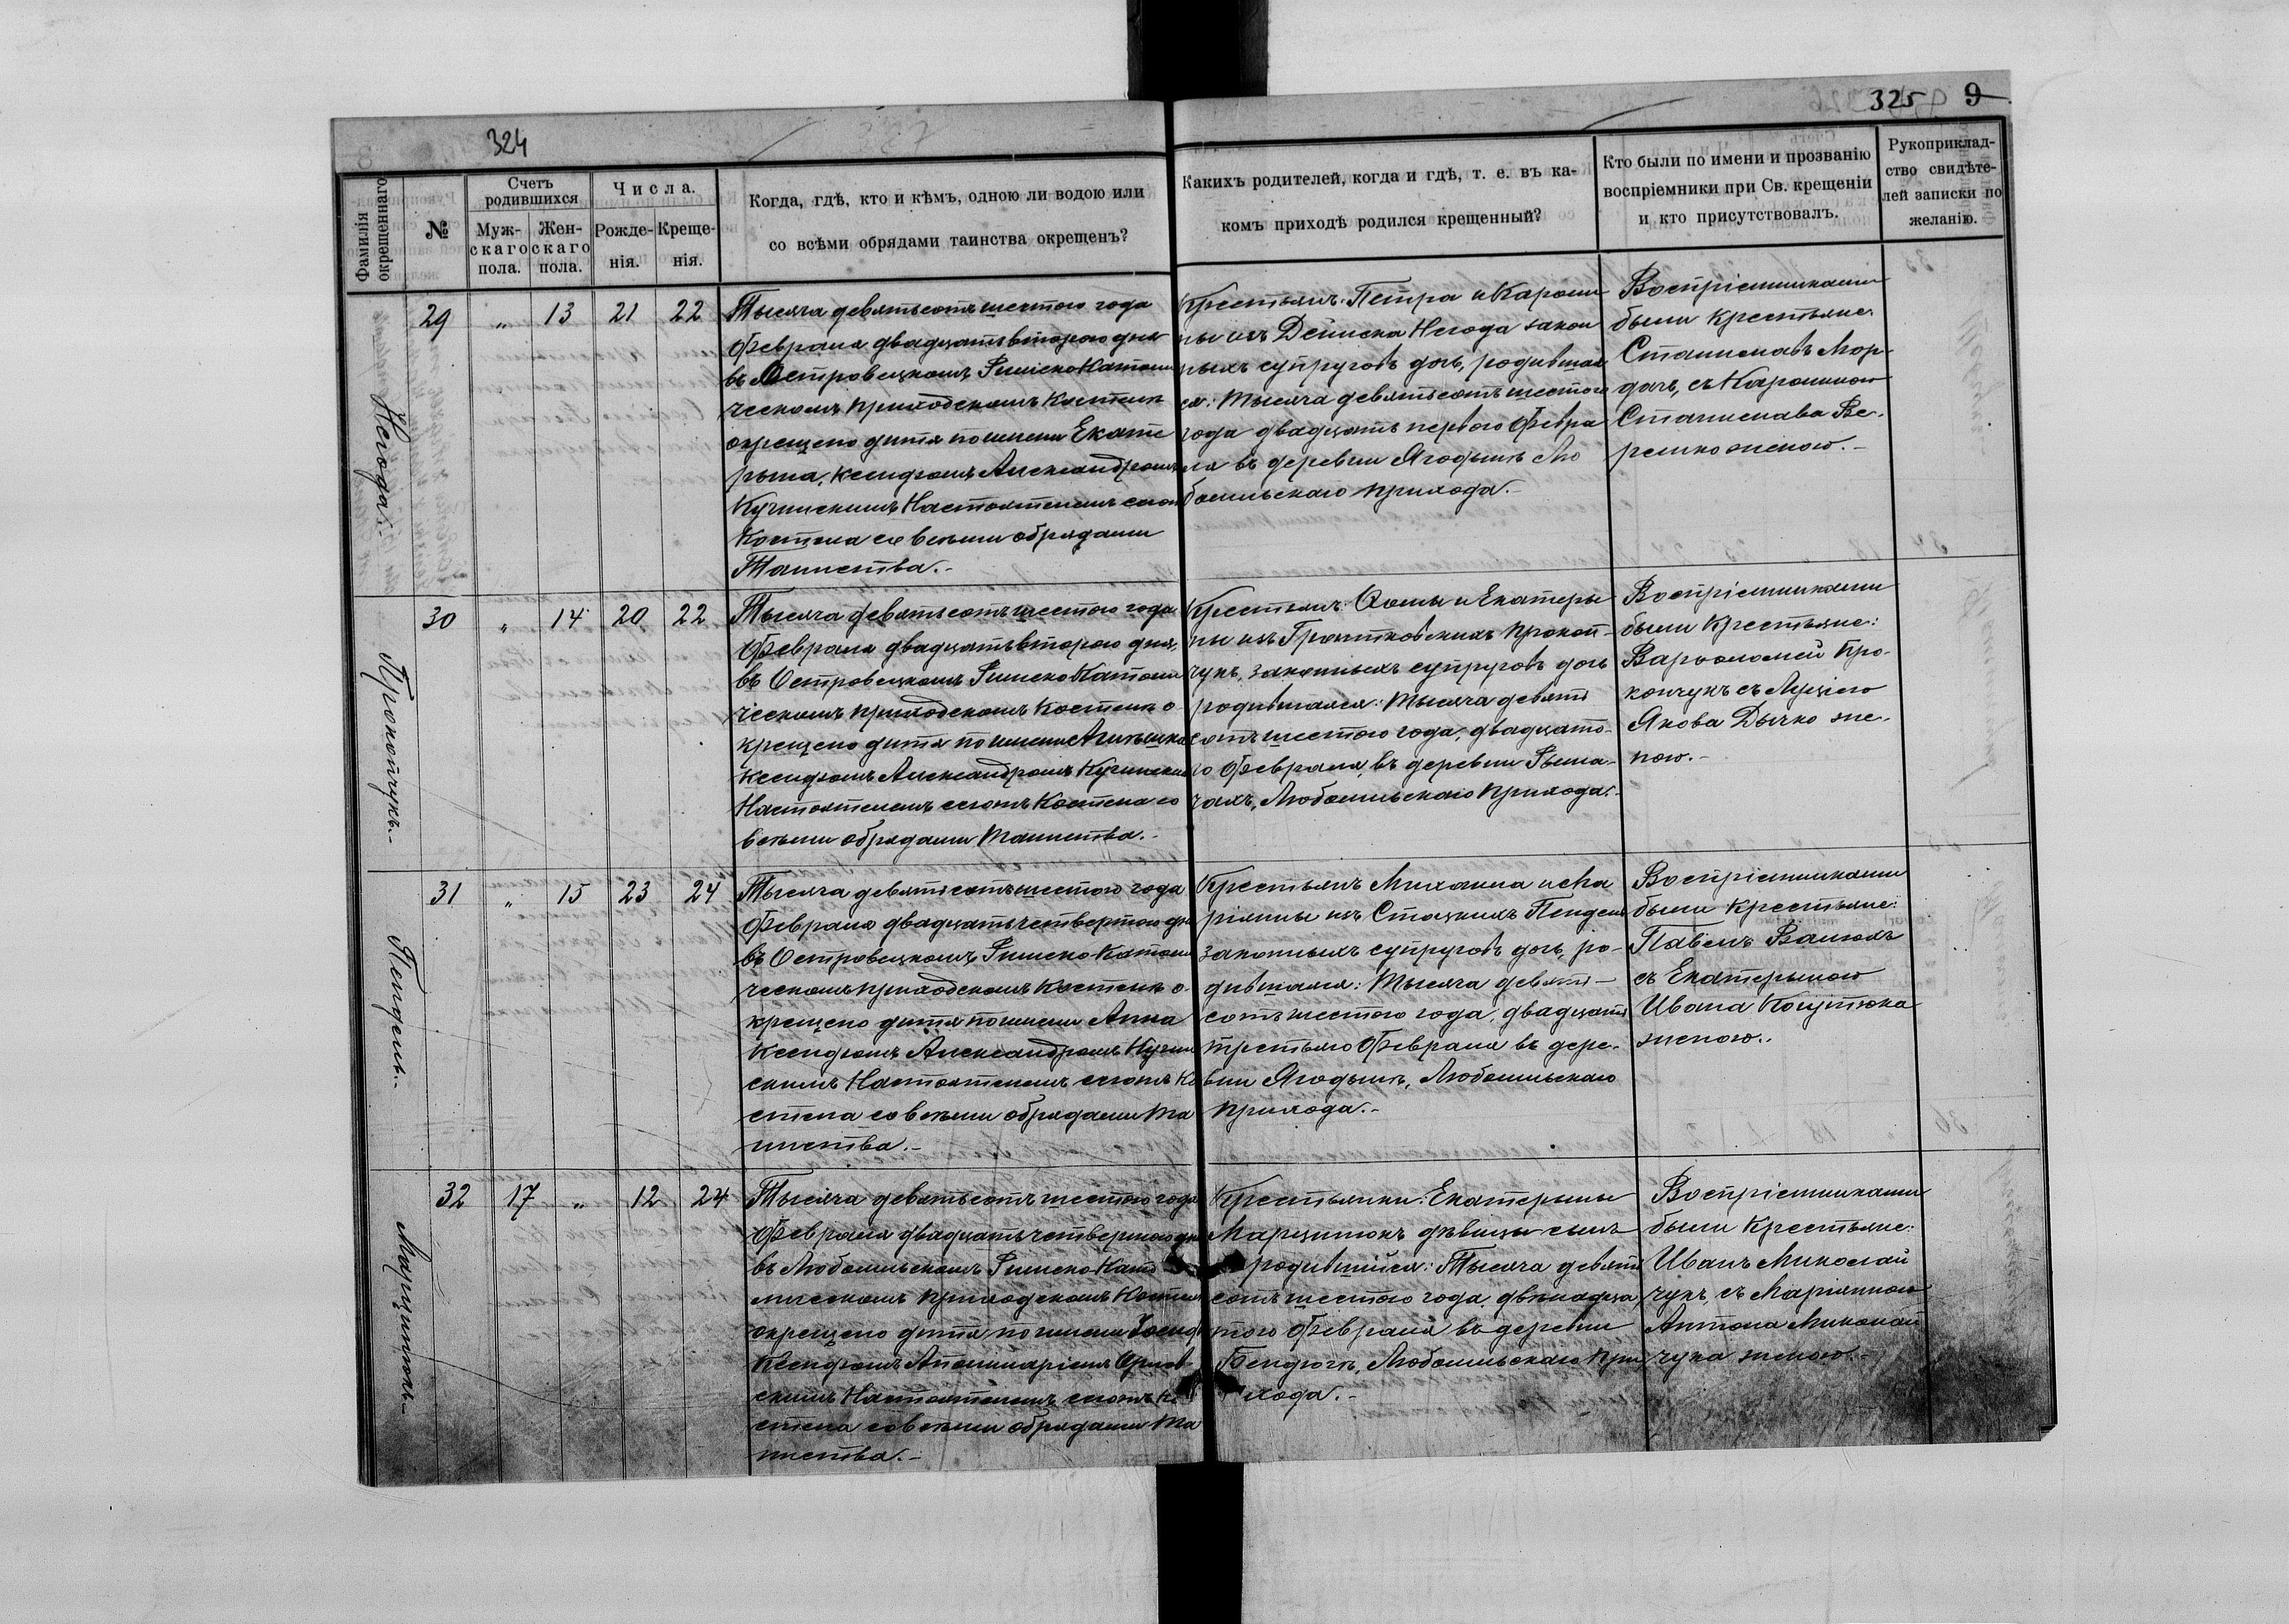 324
325 9
Фамилія окрещеннаго
№
Счетъ родившихся
Муж-скаго пола.
Жен-скаго пола.
Числа.
Рожде-нія.
Креще-нія.
Когда, гдѣ, кто и кѣмъ, одною ли водою или
со всѣми обрядами таинства окрещенъ?
Какихъ родителей, когда и гдѣ, т. е. въ ка-
комъ приходѣ родился крещенный?
Кто были по имени и прозванію
воспріемники при Св. крещеніи
и кто присутствовалъ.
Рукоприклад-
ство свидѣте-
лей записки по
желанію.
Негода.
29 „ 13 21 22
Тысяча девятьсотъ шестого года
Февраля двадцать второго дня
въ Островецкомъ Римско Католи
ческомъ приходскомъ Костелѣ
окрещено дитя по имени Екате
рына, ксендзомъ Александромъ
Кучинскимъ Настоятелемъ сего
Костела со всѣми обрядами
Таинства.-
Крестьянъ: Петра и Кароли
ны изъ Негода закон
ныхъ супруговъ дочь, родившая
ся: Тысяча девятьсотъ шестого
года двадцать первого Февра
ля въ деревни Ягодынѣ Лю
бомльскаго прихода.-
Воспріемниками
были крестьяне:
Станиславъ Мор-
дачъ, съ Каролиною
Станислава Ве-
ремко женою.-
Прокопчукъ.
30 „ 14 20 22
Тысяча девятьсотъ шестого года
Февраля двадцать второго дня,
въ Островецкомъ Римско Католи
ческомъ приходскомъ Костелѣ о-
крещено дитя по имени Агнѣшка
ксендзомъ Александромъ Кучинским
Настоятелемъ сегожъ Костела со
всѣми обрядами Таинства.-
Крестьянъ: Ѳомы и Екатеры
ны изъ Прокоп-
чукъ, законныхъ супруговъ дочь
родившаяся: Тысяча девять
сотъ шестого года, двадцато-
го Февраля, въ деревни Рыма-
чахъ, Любомльскаго прихода.-
Воспріемниками
были Крестьяне:
Варѳоломей Про-
копчукъ съ Луціею
Якова Дычко же-
ною.-
Пендель.
31 „ 15 23 24
Тысяча девятьсотъ шестого года
Февраля двадцать четвертого дня
въ Островецкомъ Римско Католи
ческомъ приходскомъ Костелѣ о-
крещено дитя по имени Анна
Ксендзомъ Александромъ Кучин
скимъ Настоятелемъ сегожъ Ко
стела со всѣми обрядами Та
инства.-
Крестьянъ Михаила и Ма
ріянны изъ Стацкихъ Пендель
законныхъ супруговъ дочь, ро-
дившаяся: Тысяча девять-
сотъ шестого года, двадцать
третьяго Февраля въ дере-
вни Ягодынѣ, Любомльскаго
прихода.-
Воспріемниками
были Крестьяне:
Павелъ
съ Екатерыною
Ивана
женою.-
Марцинюкъ.
32 17 „ 12 24
Тысяча девятьсотъ шестого года
Февраля двадцать четвертого дня
въ Любомльскомъ Римско Като
лическомъ приходскомъ Костелѣ
окрещено дитя по имени
Ксендзомъ
скимъ Настоятелемъ сегожъ Ко
стела со всѣми обрядами Та
инства.-
Крестьянки: Екатерыны
Марцинюкъ дѣвицы сынъ
родившійся: Тысяча девять
сотъ шестого года, двѣнадца
того Февраля въ деревни
Бендюгѣ, Любомльскаго при
хода.-
Воспріемниками
были Крестьяне:
Иванъ Миколай
чукъ, съ Маріянною
Антона Миколай
чука женою.-